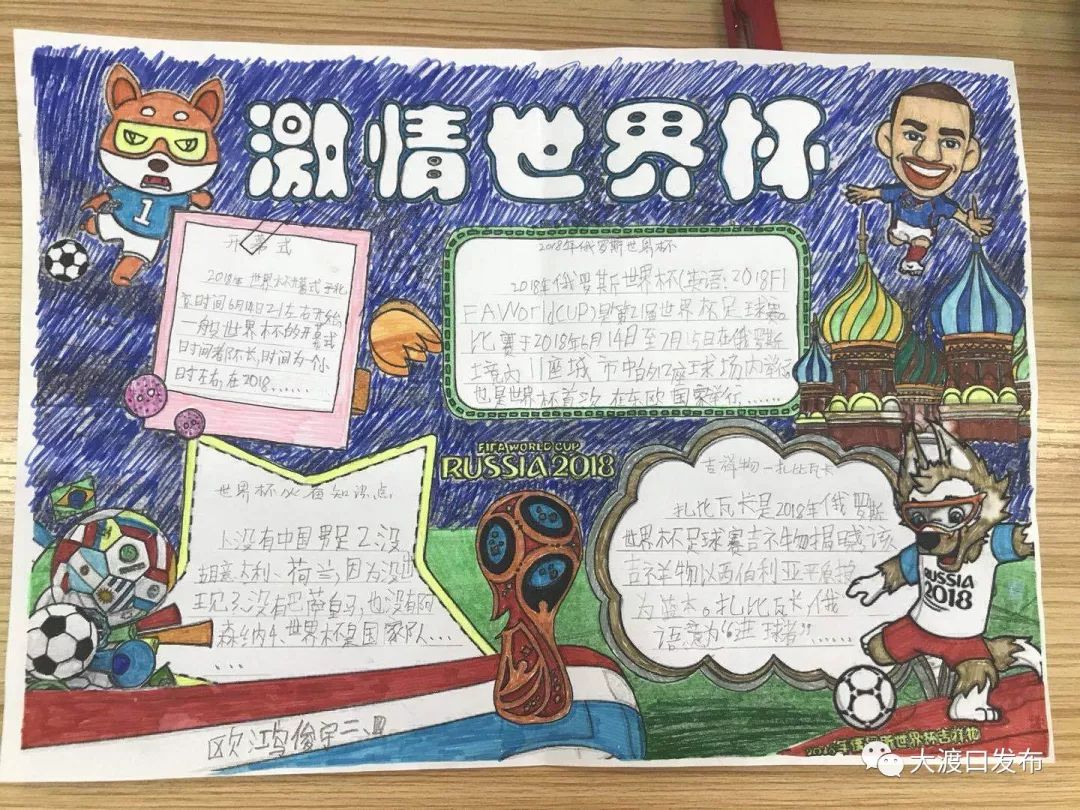 激情世界杯
1
开幕式
2018年世界杯开幕式于北
京时间6月14日21左右开始,
一般世界杯的开幕式
时间都不长,时间为个小
时左右,在2018......
2018年俄罗斯世界杯
2018年俄罗斯世界杯(英语:2018FI
FAWorldCUP)是第21届世界杯足球赛
比赛于2018年6月14日至7月15日在俄罗斯
境内11座城市中的12座球场内举行
也是世界杯首次在东欧国家举行......
世界杯必备知识点
1.没有中国男足2.没
胡意大利、荷兰,因为没出
现3.没有巴萨皇马,也没有阿
森纳4.世界杯是国家队...
...
FIFA WORLD CUP
RUSSIA 2018
吉祥物—扎比瓦卡
扎比瓦卡是2018年俄罗斯
世界杯足球赛吉祥物,该
吉祥物以西伯利亚平原狼
为蓝本。扎比瓦卡,俄
语意为“进球者”......
RUSSIA
2018
欧鸿俊
2018年俄罗斯世界杯吉祥物
大渡口发布